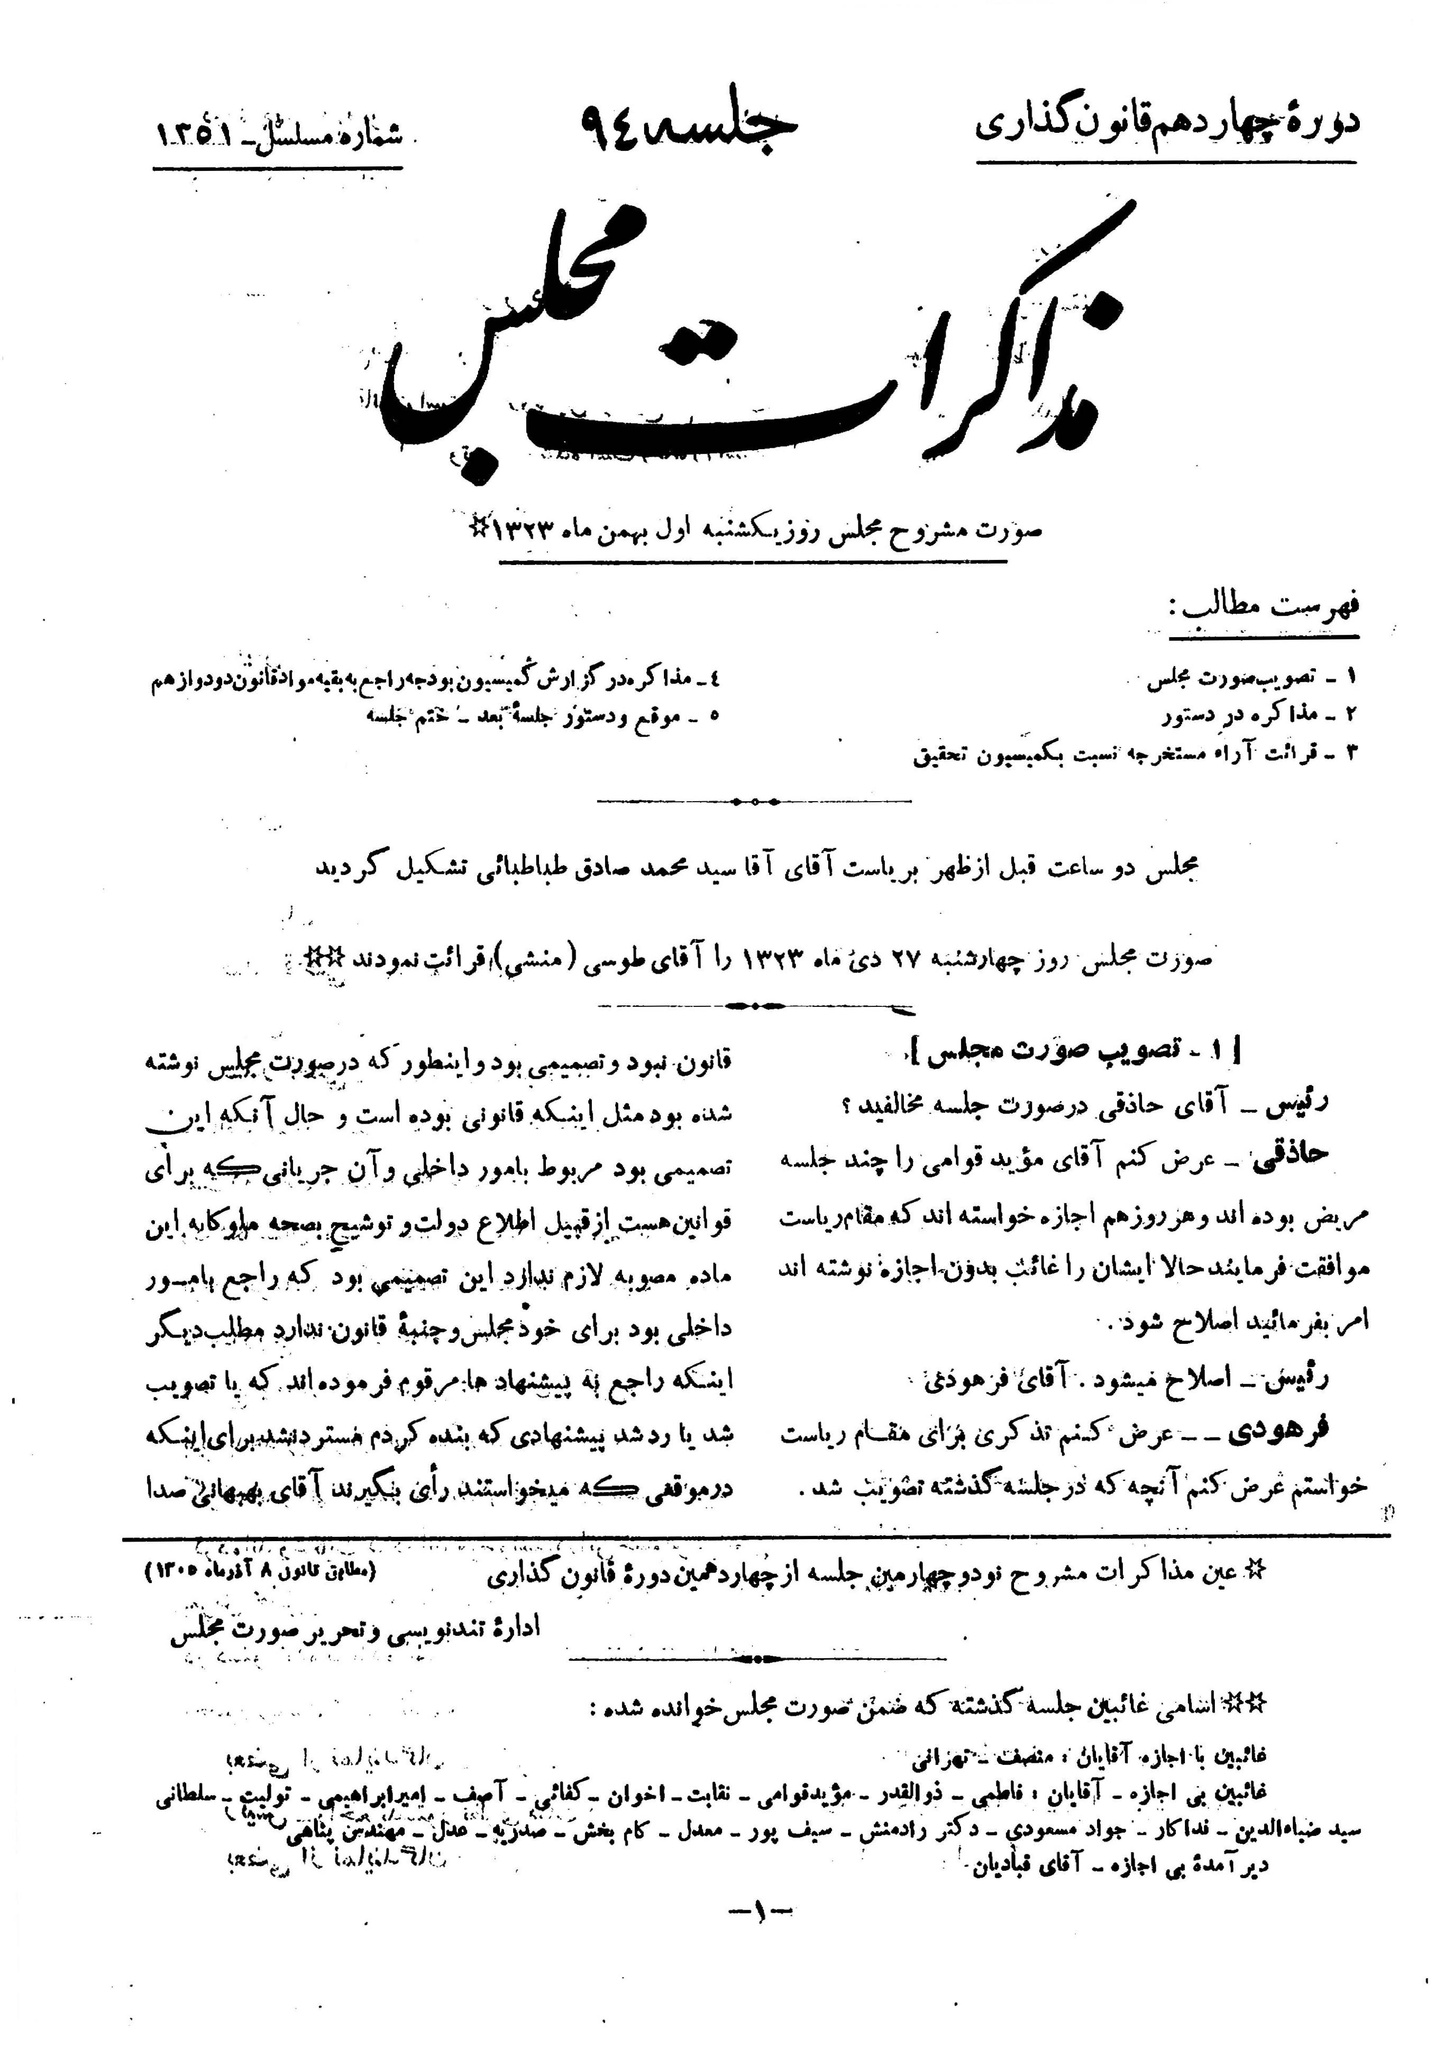 دورهٔ چهاردهم قانون گذاری
جلسه ٩٤
شمارهٔ مسلسل ـ ١٣٥١
مذاکرات مجلس
صورت مشروح مجلس روز یکشنبه اول بهمن ماه ١٣٢٣☆
فهرست مطالب :
١ ـ تصویب صورت مجلس
٢ ـ مذاکره در دستور
٣ ـ قرائت آراء مستخرجه نسبت بکمیسیون تحقیق
٤ ـ مذاکره در گزارش کمیسیون بودجه راجع به بقیه مواد قانون دو دوازهم
٥ ـ موقع و دستور جلسهٔ بعد ـ ختم جلسه
مجلس دو ساعت قبل از ظهر بریاست آقای آقا سید محمد صادق طباطبائی تشکیل گردید
صورت مجلس روز چهارشنبه ٢٧ دی ماه ١٣٢٣ را آقای طوسی (منشی) قرائت نمودند☆☆
[ ١ ـ تصویب صورت مجلس ]
رئیس ـ آقای حاذقی در صورت جلسه مخالفید ؟
حاذقی ـ عرض کنم آقای مؤید قوامی را چند جلسه
مریض بوده اند و هر روز هم اجازه خواسته اند که مقام ریاست
موافقت فرمایند حالا ایشان را غائب بدون اجازه نوشته اند
امر بفرمائید اصلاح شود .
رئیس ـ اصلاح میشود . آقای فرهودی
فرهودی ـ ـ عرض کنم تذکری برای مقام ریاست
خواستم عرض کنم آنچه که در جلسه گذشته تصویب شد .
قانون نبود و تصمیمی بود و اینطور که در صورت مجلس نوشته
شده بود مثل اینکه قانونی بوده است و حال آنکه این
تصمیمی بود مربوط بامور داخلی و آن جریانی که برای
قوانین هست از قبیل اطلاع دولت و توشیح بصحه ملوکانه این
ماده مصوبه لازم ندارد این تصمیمی بود که راجع بامور
داخلی بود برای خود مجلس و جنبهٔ قانون ندارد مطلب دیگر
اینکه راجع به پیشنهاد ها مرقوم فرموده اند که یا تصویب
شد یا رد شد پیشنهادی که بنده کردم مسترد نشد برای اینکه
در موقعی که میخواستند رأی بگیرند آقای بهبهانی صدا
☆ عین مذاکرات مشروح نود و چهارمین جلسه از چهاردهمین دورهٔ قانون گذاری
(مطابق قانون ٨ آذرماه ١٣٠٥)
ادارهٔ تندنویسی و تحریر صورت مجلس
☆☆ اسامی غائبین جلسه گذشته که ضمن صورت مجلس خوانده شده :
غائبین با اجازه آقایان : منصف ـ تهرانی
غائبین بی اجازه ـ آقایان : فاطمی ـ ذوالقدر ـ مؤید قوامی ـ نقابت ـ اخوان ـ کفائی ـ آصف ـ امیر ابراهیمی ـ تولیت ـ سلطانی
سید ضیاءالدین ـ فداکار ـ جواد مسعودی ـ دکتر رادمنش ـ سیف پور ـ معدل ـ کام بخش ـ صدریه ـ عدل ـ مهندس پناهی
دیر آمدهٔ بی اجازه ـ آقای قبادیان
ـ١ـ